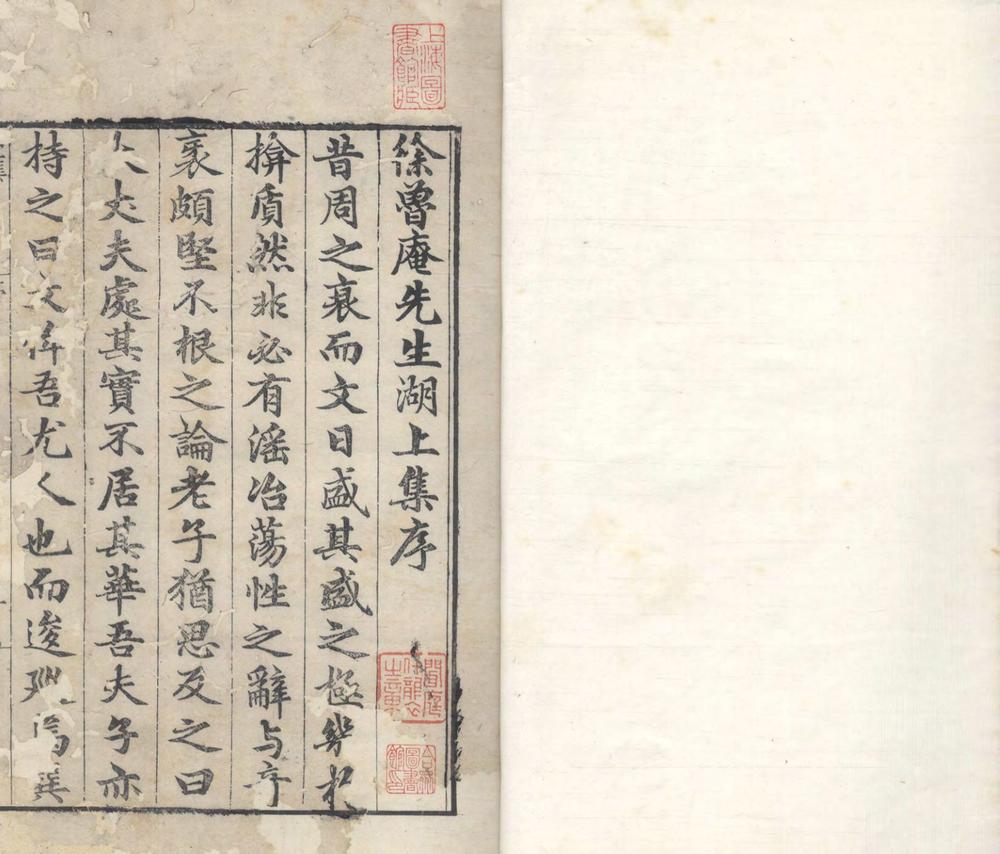 徐魯庵先生湖上集序
昔周之衰而文日盛其盛之極幾於
揜質然非必有滛冶蕩性之辭与奇
衺頗堅不根之論老子猶思及之曰
大丈夫處其實不居其華吾夫子亦
持之曰文吾尤人也而逡
上海圖書館
合眾圖書館